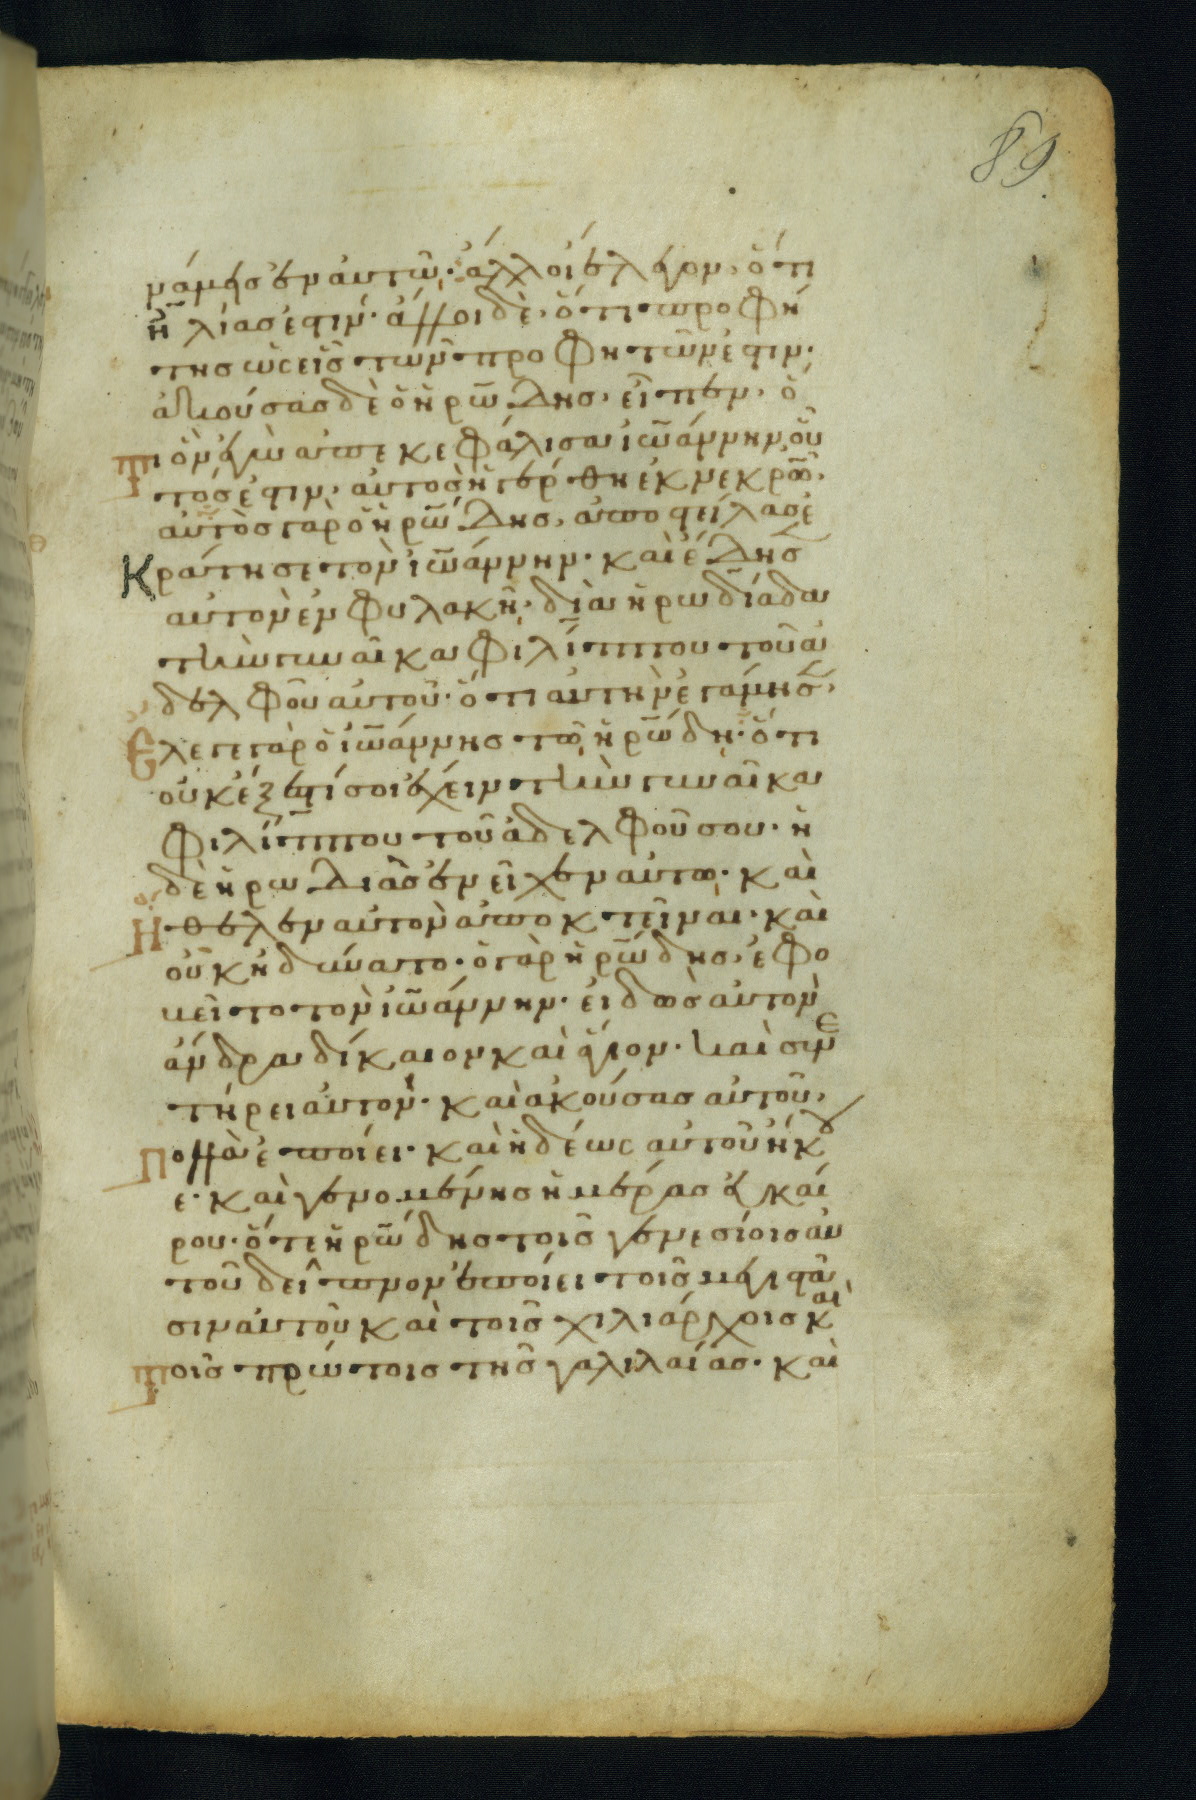 89
νάμης ἐν αυτῶ· ἀλλοι ἔλεγον, ὅτι
ἠλίας ἐστίν· ἀλλοι δὲ, ὅτι προφή
της ὡς εἷς τῶν προφητῶν ἐστιν·
ἀκούσας δὲ ὁ ἡρώδης, εἶπεν, ὅ
τι ὃν ἐγὼ απεκεφάλισα ἰωάννην, οὗ
τός ἐστιν, αυτος ἠγέρθη ἐκ νεκρῶν,
αυτὸς γαρ ὁ ἡρώδης, αποστείλας ἐ
κράτησε τὸν ἰωάννην· καὶ ἔδησεν
αυτὸν ἐν φυλακῆ, διὰ ἡρωδίαδα
τὴν γυναῖκα φιλίππου τοῦ α
δελφοῦ αυτοῦ· ὅτι αυτὴν ἐγάμησεν,
ἔλεγε γὰρ ὁ ἰωάννης τῶ ἡρώδη· ὅτι
οὐκ ἔξεστί σοι ἔχειν τὴν γυναῖκα
φιλίππου τοῦ ἀδελφοῦ σου· ἡ
δὲ ἡρωδιὰς ἐνεῖχεν αυτῶ· καὶ
ἤθελεν αυτὸν αποκτεῖναι· καὶ
οὐκ ἠδύνατο· ὁ γὰρ ἡρώδης, ἐφο
βεῖτο τὸν ἰωάννην· ειδὼς αυτὸν
ἄνδρα δίκαιον καὶ ἅγιον· καὶ συνε
τήρει αυτόν· καὶ ἀκούσας αυτοῦ,
πολλὰ ἐποίει· καὶ ἡδέως αυτοῦ ἤκου
ε· καὶ γενομένης ἡμέρας ευκαί
ρου· ὅτε ἡρώδης τοῖς γενεσίοις αυ
τοῦ δεῖπνον ἐποίει τοῖς μεγιστᾶ
σιν αυτοῦ καὶ τοῖς χιλιάρχοις καὶ
τοῖς πρώτοις τῆς γαλιλαίας· καὶ